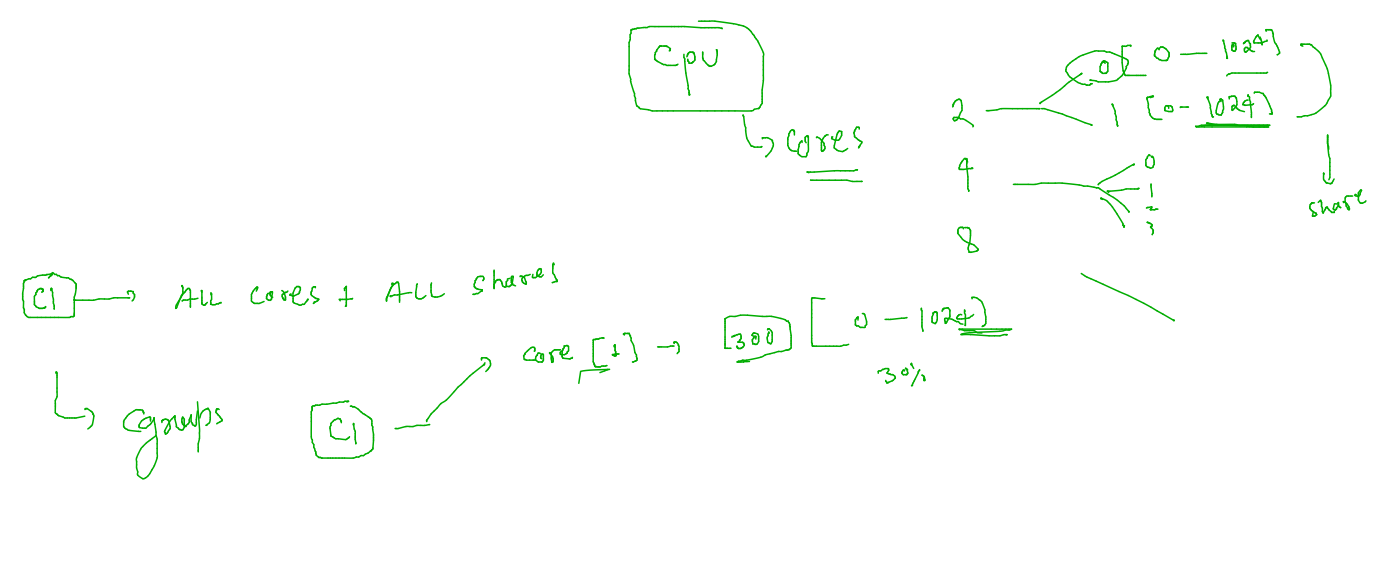 Cpu
cores
2
0 [ 0 - 1024]
1 [0- 1024]
share
4
0
1
2
3
8
C1
ALL cores + ALL shares
cgroups
C1
core [1]
300
[ 0 - 1024]
30%